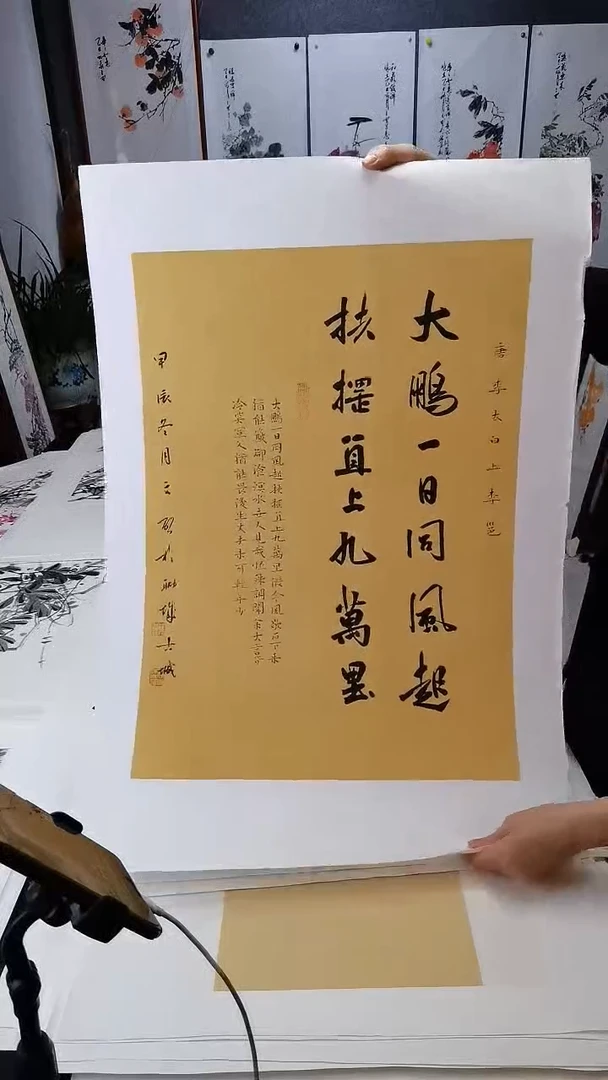 唐李太白上李邕
大鵬一日同風起
扶摇直上九萬里
大鵬一日同風起扶摇直上九萬里假令風歇時下來
猶能簸卻滄溟水世人見我恆殊調聞余大言皆
冷笑宣父猶能畏後生丈夫未可輕年少
甲辰冬月於聊城古城